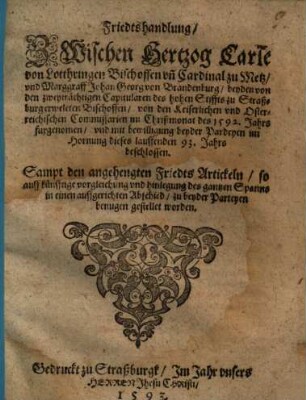 Friedtshandlung/
ZWischen Hertzog Carle
von Lotthringen Bischoffen uñ Cardinal zu Metz/
und Marggraff Johan Georg von Brandenburg/ beyden von
den zweyträchtigen Capitularen des hohen Stiffts zu Straß-
burg erweleten Bischoffen/ von den Keiserlichen und Oster-
reichischen Commissarien im Christmonat des 1592. Jahrs
fürgenomen/ und mit bewilligung beyder Partheyen im
Hornung dieses lauffenden 93. Jahrs
beschlossen.
Sampt den angehengten Friedts Artickeln/ so
auff künfftige vergleichung und hinlegung des gantzen Spanns
in einen auffgerichten Abschied/ zu beyder Parteyen
benugen gestellet worden.
Gedruckt zu Straßburgk/ Im Jahr unsers
HERREN Jhesu Christi/
1593.